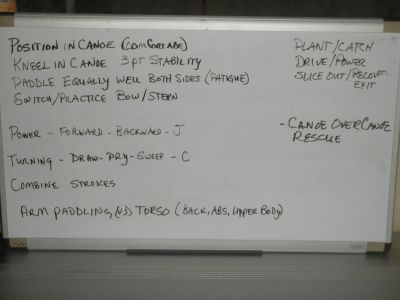 POSITION IN CANOE (COMFORTABLE)
KNEEL IN CANOE 3 PT STABILITY
PADDLE EQUALLY WELL BOTH SIDES (FATIGUE)
SWITCH/PRACTICE BOW/STERN
POWER - FORWARD - BACKWARD - J
TURNING - DRAW - PRY - SWEEP - C
COMBINE STROKES
ARM PADDLING, (VS) TORSO (BACK, ABS, UPPER BODY)
PLANT/CATCH
DRIVE/POWER
SLICE OUT/RECOVERY
EXIT
- CANOE OVER CANOE
RESCUE